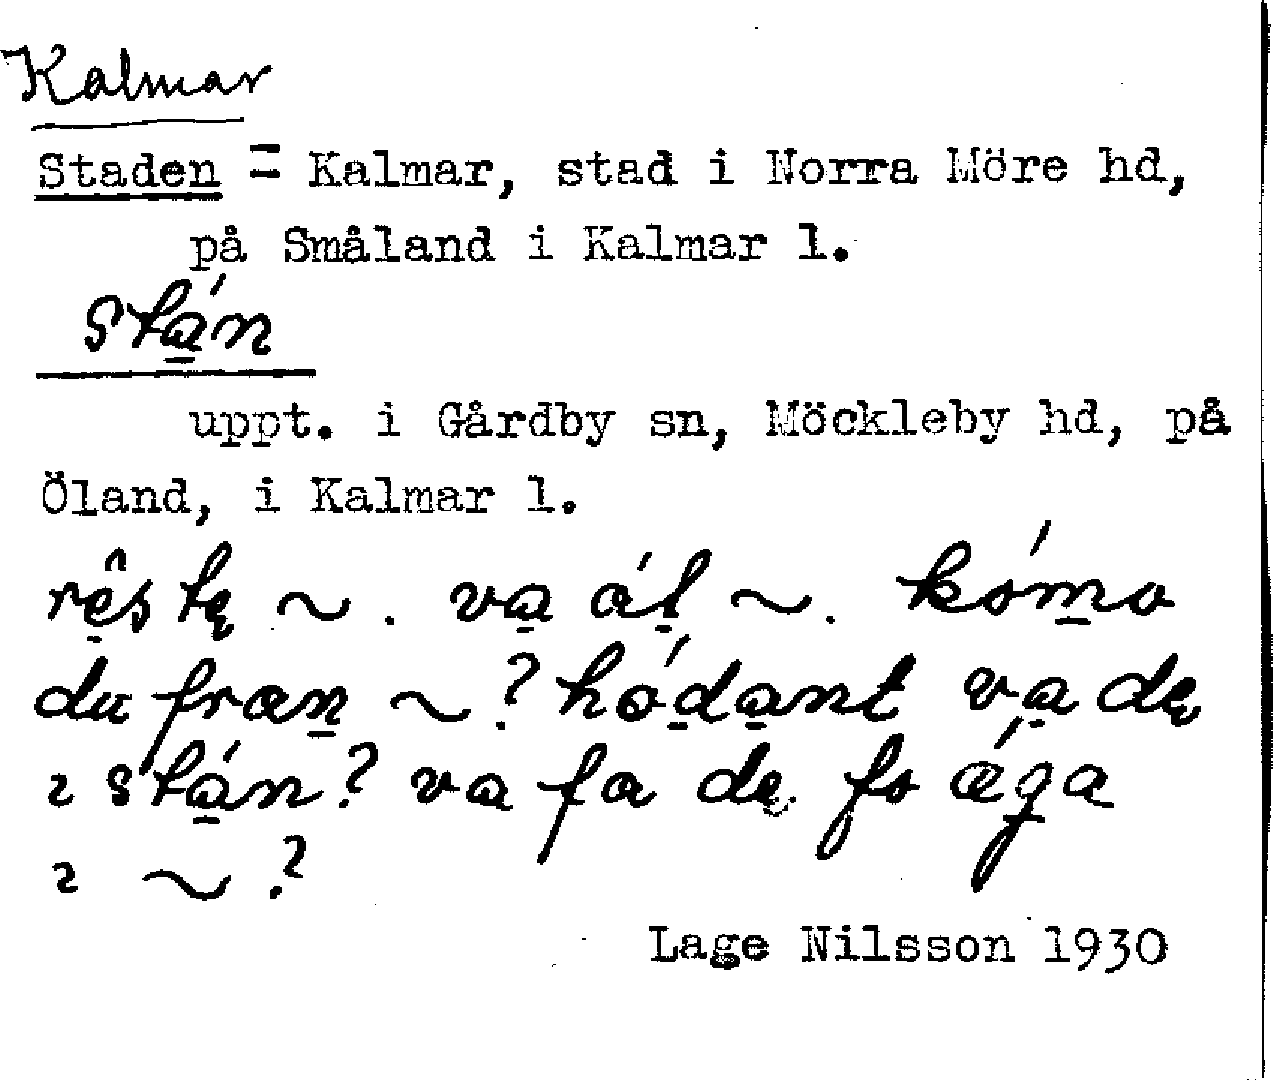 Kalmar
Staden = Kalmar, stad i Norra Möre hd,
på Småland i Kalmar l.
stá̱n
uppt. i Gårdby sn, Möckleby hd, på
Öland, i Kalmar l.
rê̱stę ~. va̱ áḻ ~. kóm̱o
du fraṉ ~? hó̱da̱nt va̱ dę
ı stá̱n? va fa dę fo ǽga
ı ~?
Lage Nilsson 1930